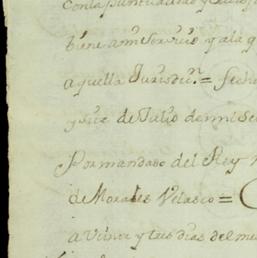 con la puntualidad y
biene a mi seruiº y a la q
aquella Jurisdicⁿ = fecho
y seis de Julio de mil se
Por mandado del Rey
de Morales Velasco =
a veinte y tres dias del me